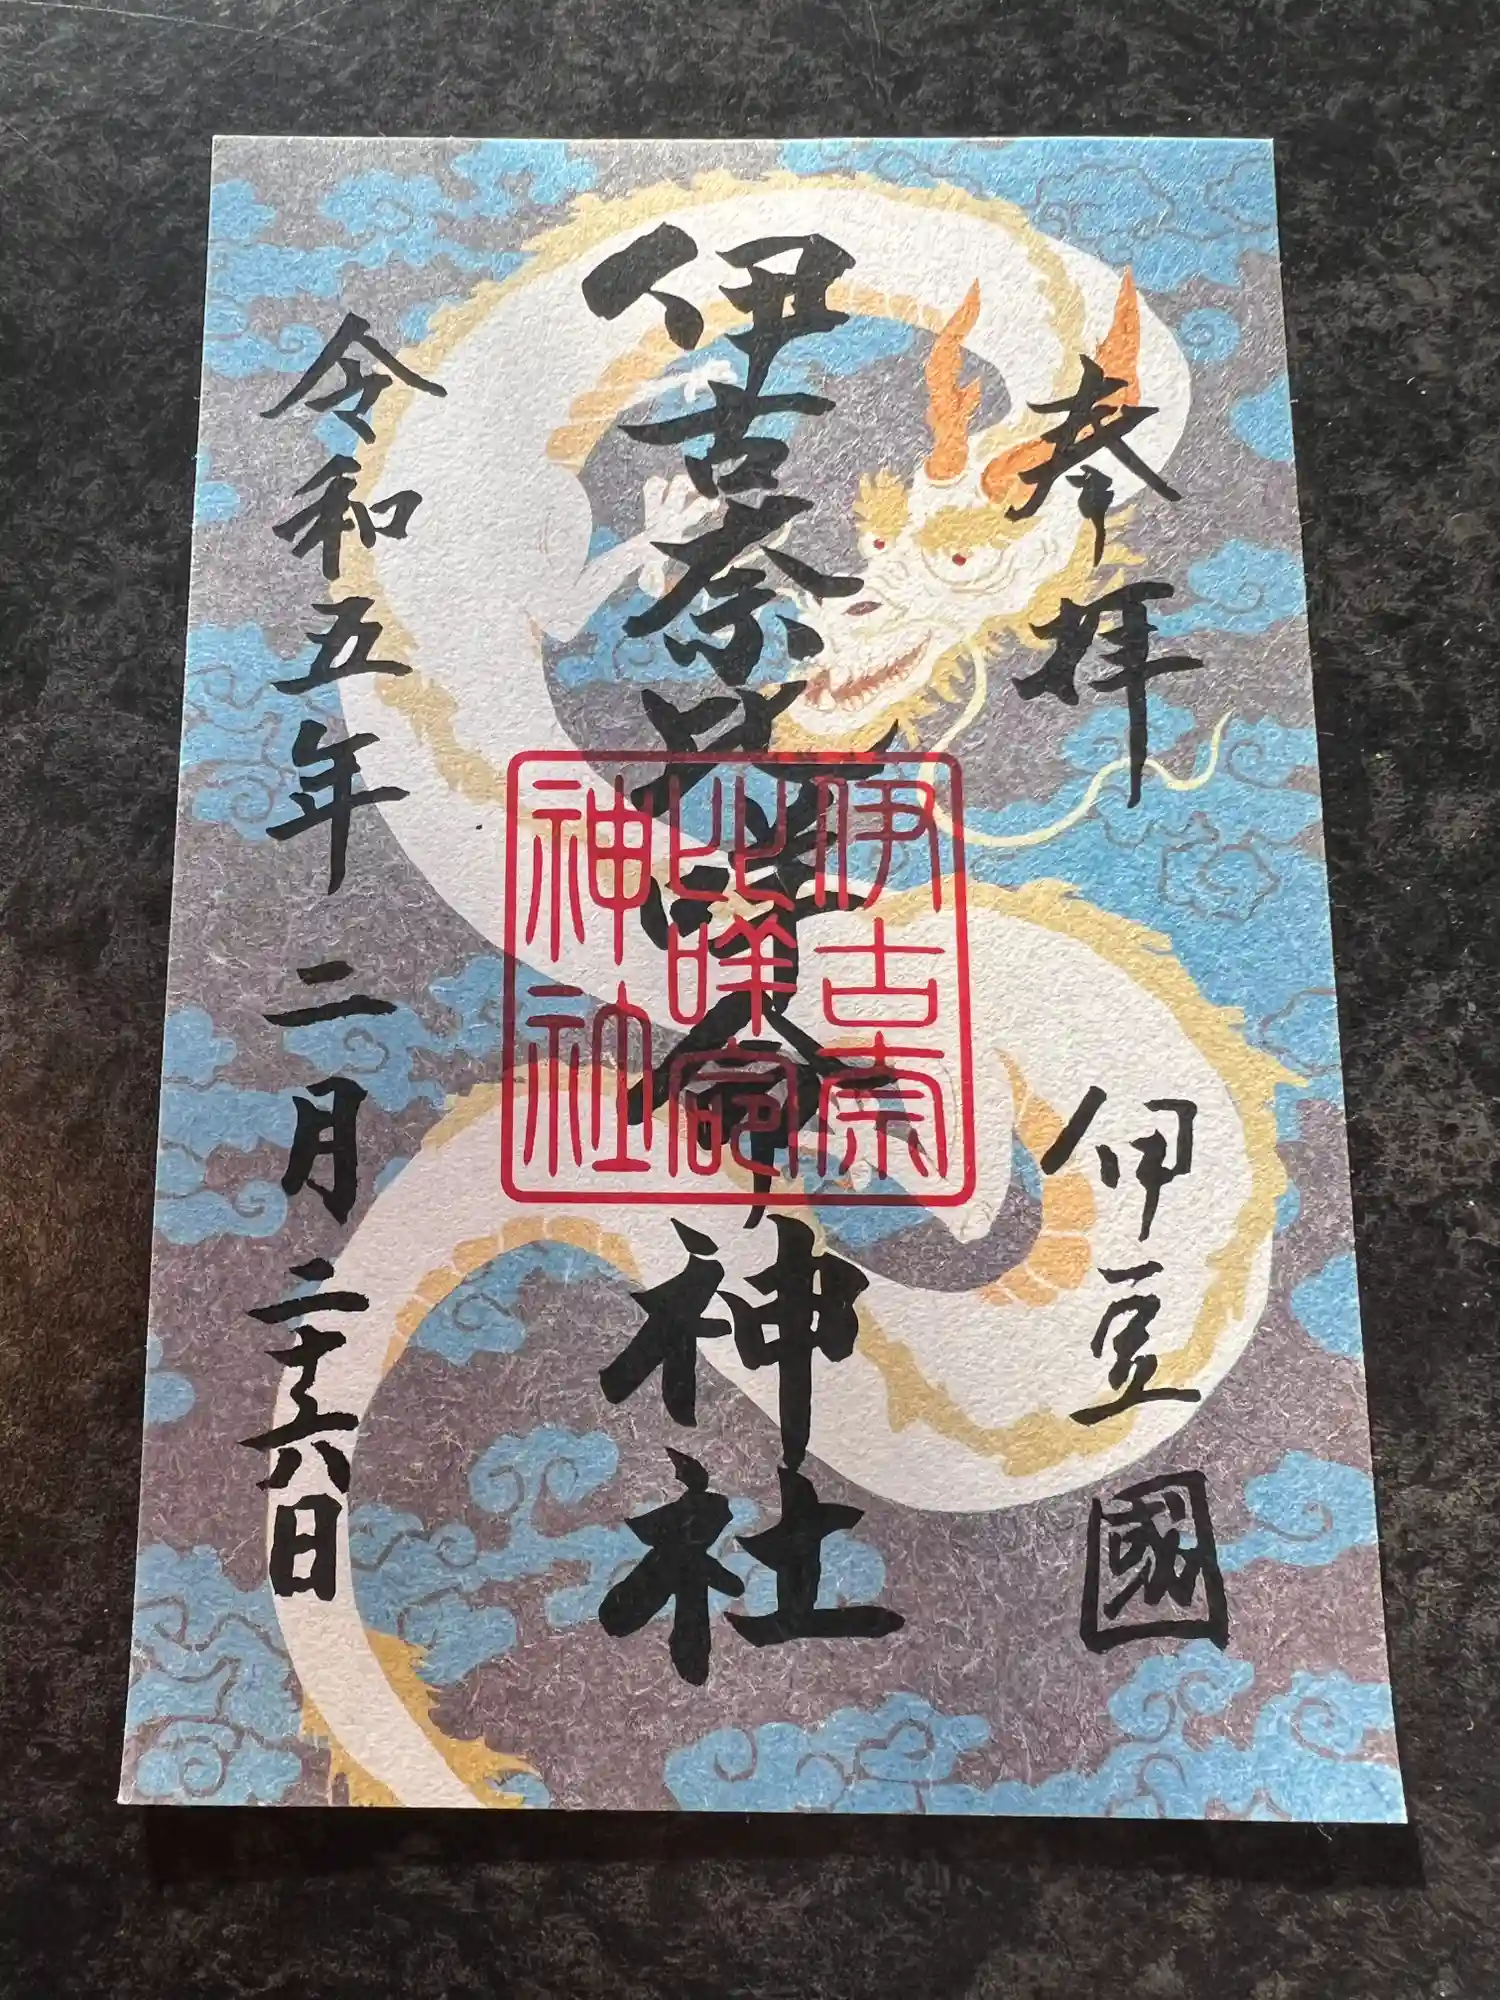 奉拝
伊豆國
伊古奈比咩命神社
伊古奈
比咩命
神社
令和五年二月二十六日